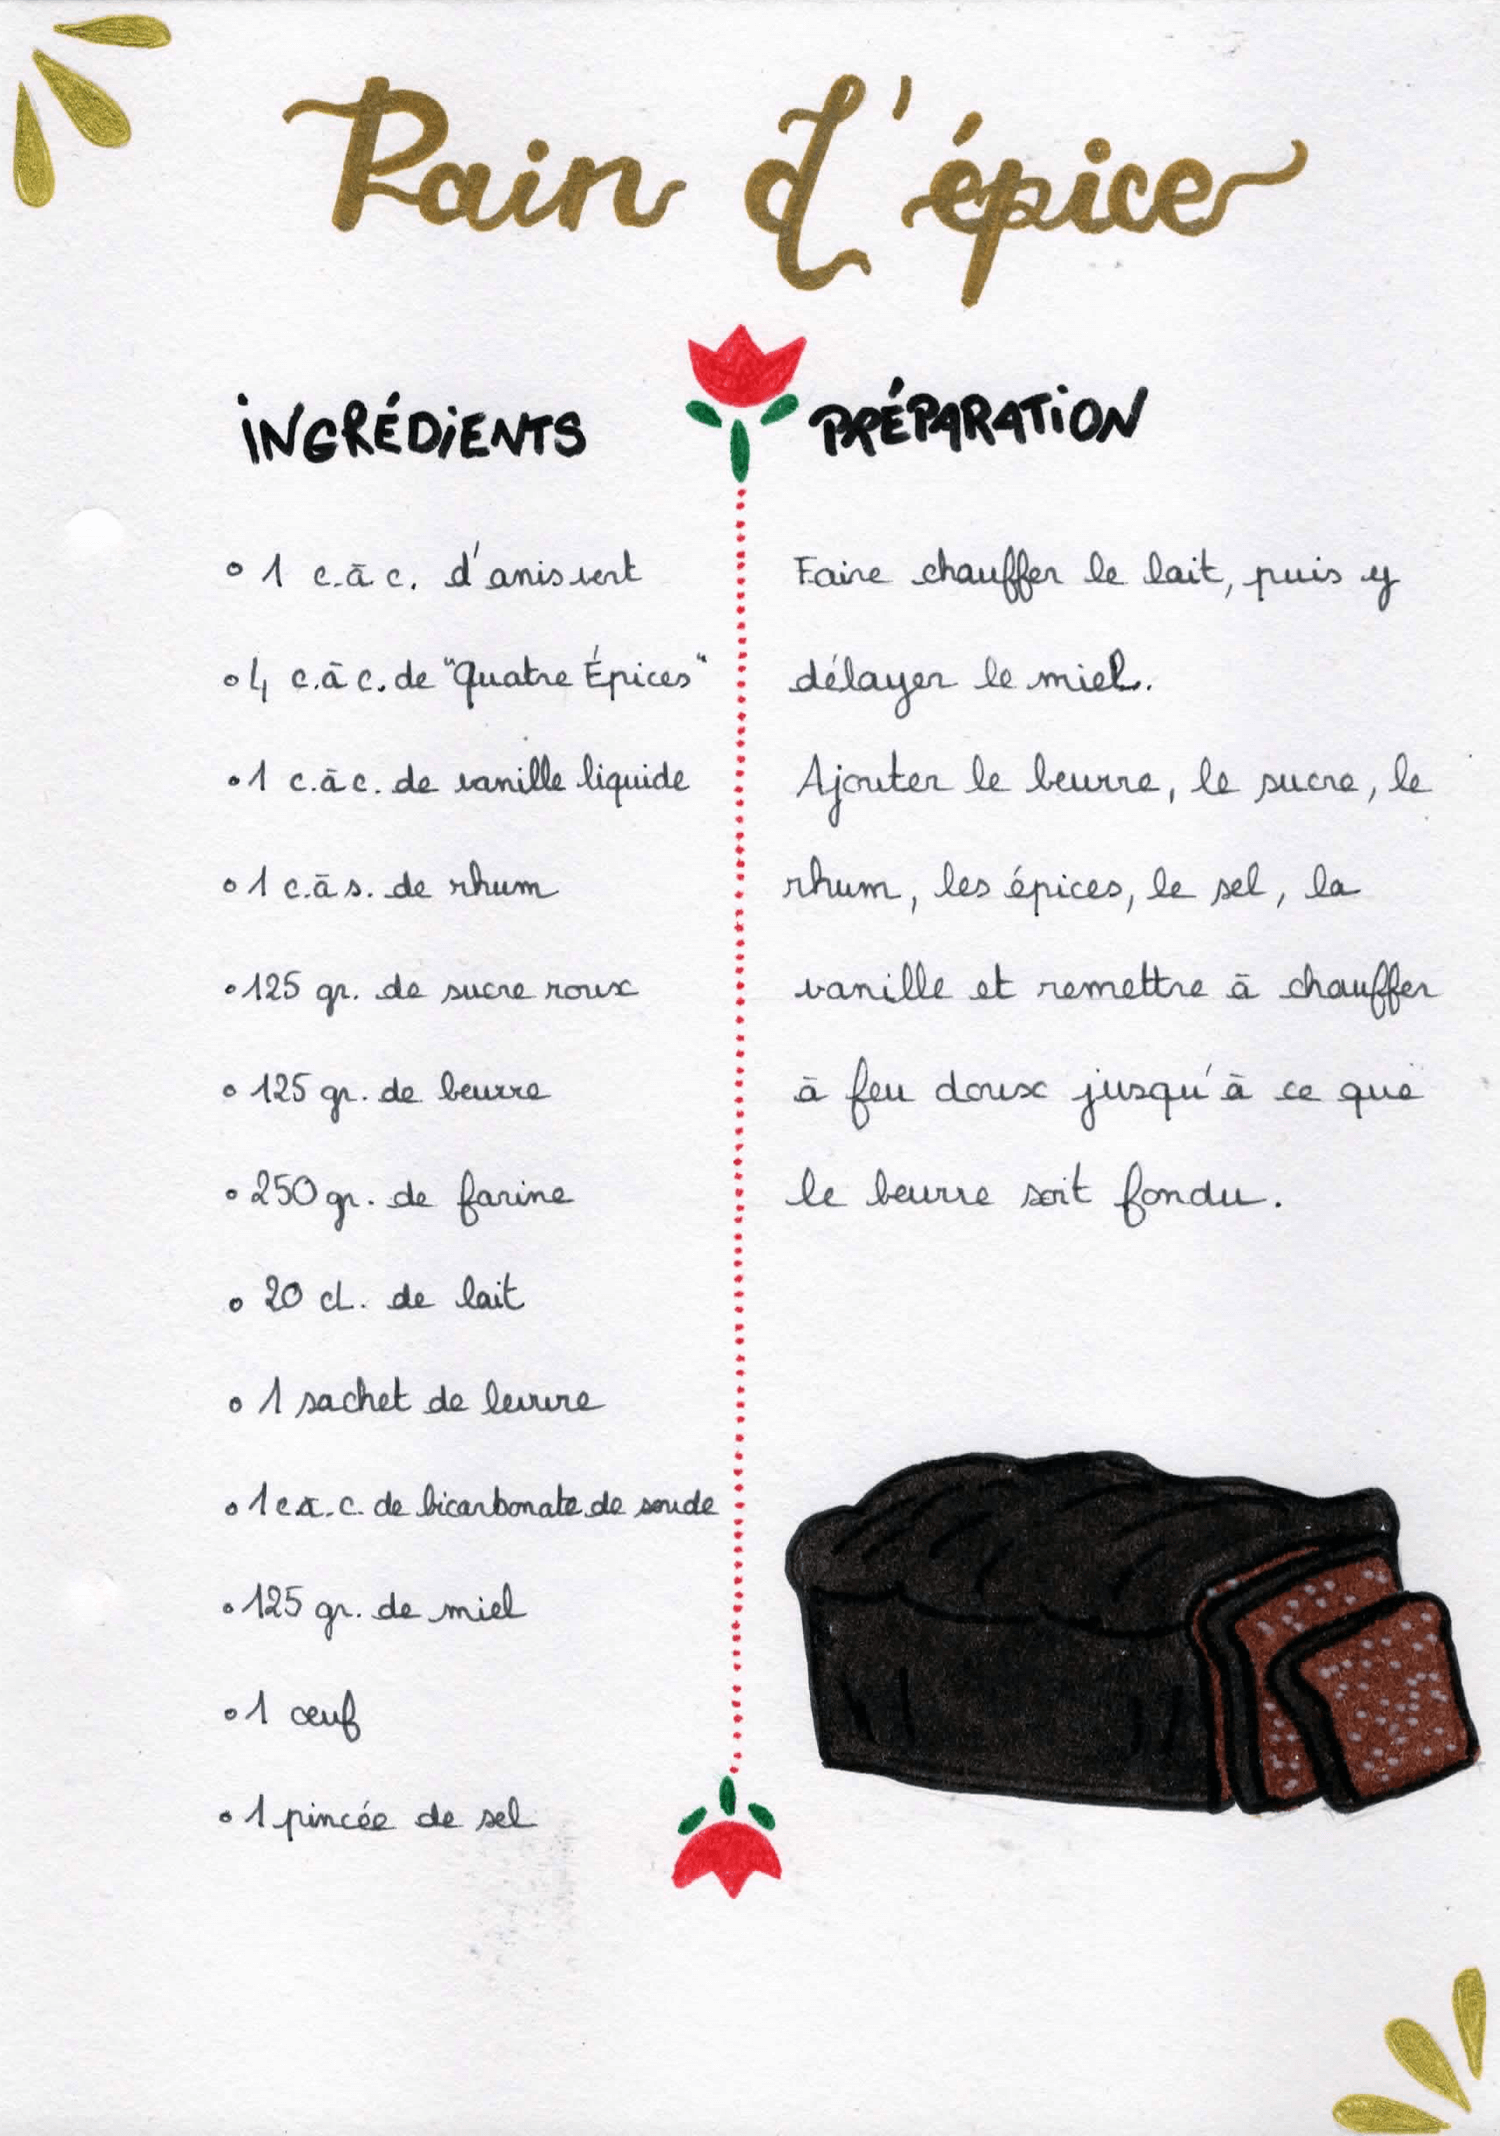 Pain d'épice
INGRÉDIENTS
1 c.à c. d'anis vert
4 c.à c. de "Quatre Épices"
1 c.à c. de vanille liquide
1 c.à s. de rhum
125 gr. de sucre roux
125 gr. de beurre
250 gr. de farine
20 cL. de lait
1 sachet de levure
1 c.à.c. de bicarbonate de soude
125 gr. de miel
1 œuf
1 pincée de sel
PRÉPARATION
Faire chauffer le lait, puis y
délayer le miel.
Ajouter le beurre, le sucre, le
rhum, les épices, le sel, la
vanille et remettre à chauffer
à feu doux jusqu'à ce que
le beurre soit fondu.